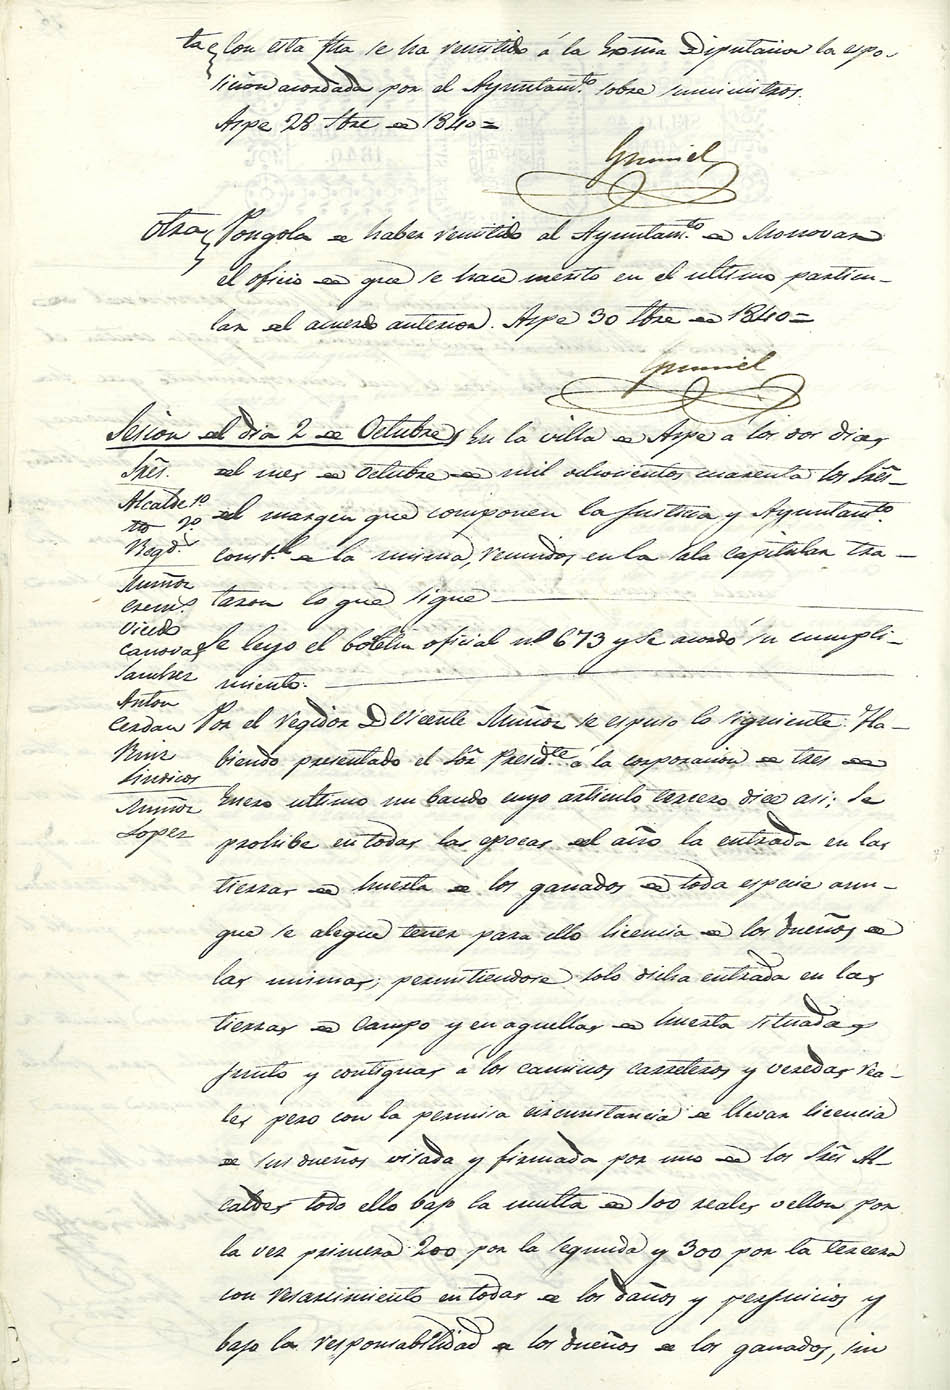 ta Con esta fha se ha remitido á la Exma Diputacion la espo-
sicion acordada por el Ayuntamto. sobre suministros.
Aspe 28 7bre de 1840=
otra Pongola de haber remitido al Ayuntamto. de Monovar
el oficio de que se hace merito en el ultimo particu-
lar del acuerdo anterior. Aspe 30 7bre de 1840=
Sesion del dia 2 de Octubre En la villa de Aspe á los dos dias
Sres.
Alcalde 1º
2º
Regds.
Muñoz
Vicedo
Canovas
Sanchez
Anton
Cerdan
Ruiz
Sindicos
Muñoz
Lopez
del mes de Octubre de mil ochocientos cuarenta los Sres.
del margen que componen la Justicia y Ayuntamto.
constl. de la misma, reunidos en la sala capitular tra-
taron lo que sigue
Se leyo el boletin oficial nº 673 y se acordó su cumpli-
miento.
Por el regidor D Vicente Muñoz se espuso lo siguiente: Ha-
biendo presentado el Sor. Presidte. á la corporacion de tres de
Enero ultimo un bando cuyo articulo tercero dice asi: Se
prohibe en todas las epocas del año la entrada en las
tierras de huerta de los ganados de toda especie aun-
que se alegue tener para ello licencia de los dueños de
las mismas; permitiendose solo dicha entrada en las
tierras de campo y en aquellas de huerta situadas
junto y contiguas á los caminos carreteros y veredas rea-
les pero con la permisa circunstancia de llevar licencia
de sus dueños visada y firmada por uno de los Sres Al-
caldes todo ello bajo la multa de 100 reales vellon por
la vez primera 200 por la segunda y 300 por la tercera
con resarcimiento en todas de los daños y perjuicios y
bajo la responsabilidad de los dueños de los ganados, sin